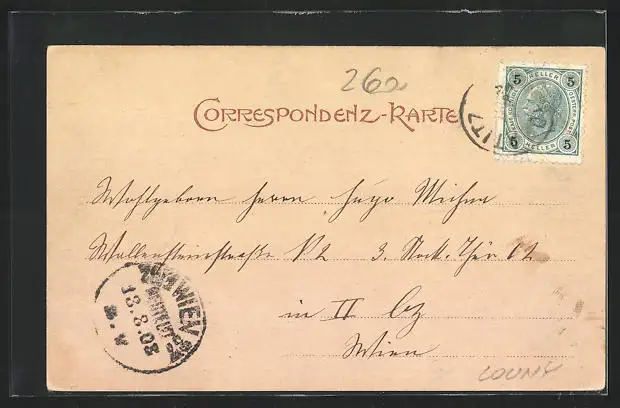 260
CORRESPONDENZ-KARTE
5 HELLER 5
5 HELLER 5
TITZ
Wohlgeboren Herrn Hugo
Wallensteinstraße 3. Stock. Thür 12
in II Bz
Wien
WIEN
13.8.
LOUNY